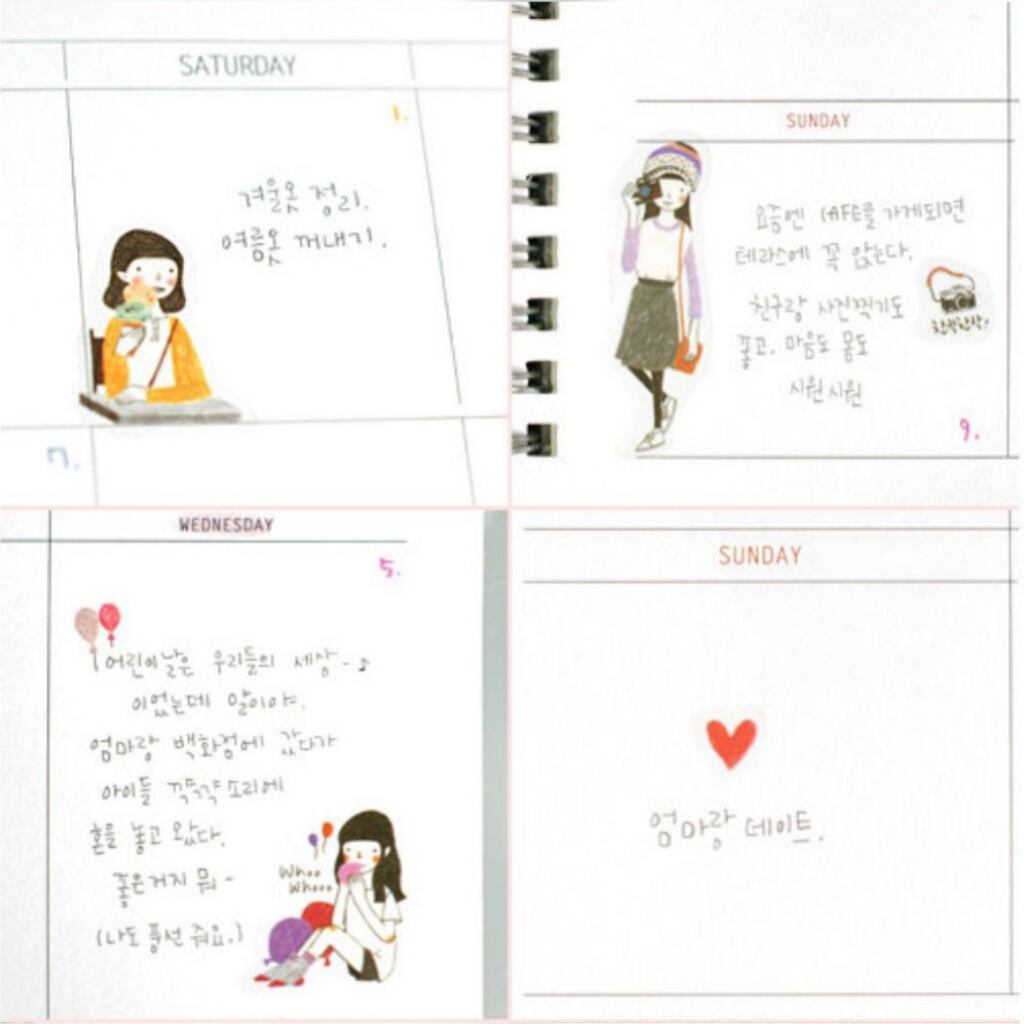 SATURDAY
1.
겨울옷 정리.
여름옷 꺼내기.
7.
SUNDAY
요즘엔 CAFE를 가게되면
테라스에 꼭 앉는다.
친구랑 사진찍기도
좋고. 마음도 몸도
시원시원
찰칵찰칵!
9.
WEDNESDAY
5.
어린이날은 우리들의 세상-♪
이었는데 말이야.
엄마랑 백화점에 갔다가
아이들 꺅꺅 소리에
혼을 놓고 왔다.
좋은거지 뭐-
(나도 풍선 줘요.)
Whoo
Whooo
SUNDAY
엄마랑 데이트.